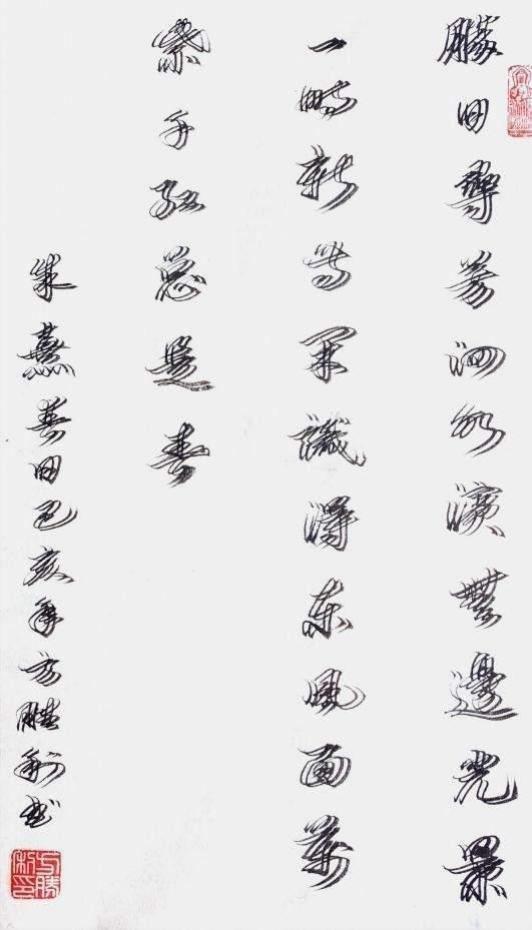 勝日尋芳泗水濱無邊光景
一時新等閑識得東風面萬
紫千紅總是春
朱熹春日己亥年方勝利书
方勝利印